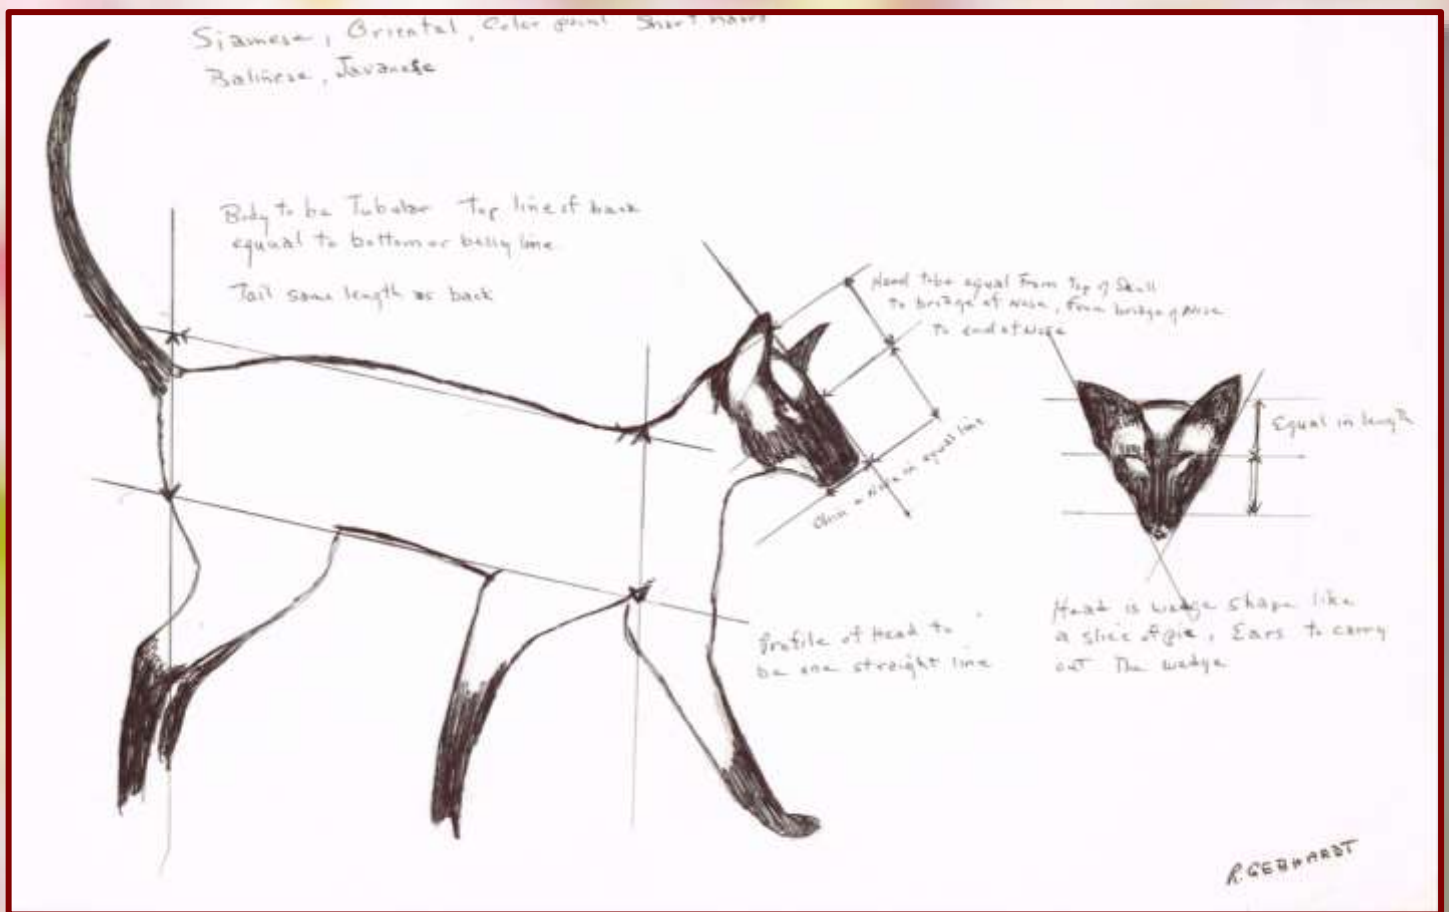 Siamese, Oriental, Color point Short hairs
Balinese, Javanese
Body to be Tubular Top line of back
equal to bottom or belly line
Tail same length as back
Head to be equal From Top of Skull
to bridge of Nose, From bridge of Nose
to end of Nose
Chin & Nose in equal line
Equal in length
Profile of Head to
be one straight line
Head is wedge shape like
a slice of pie, Ears to carry
out The wedge
R. GEBHARDT